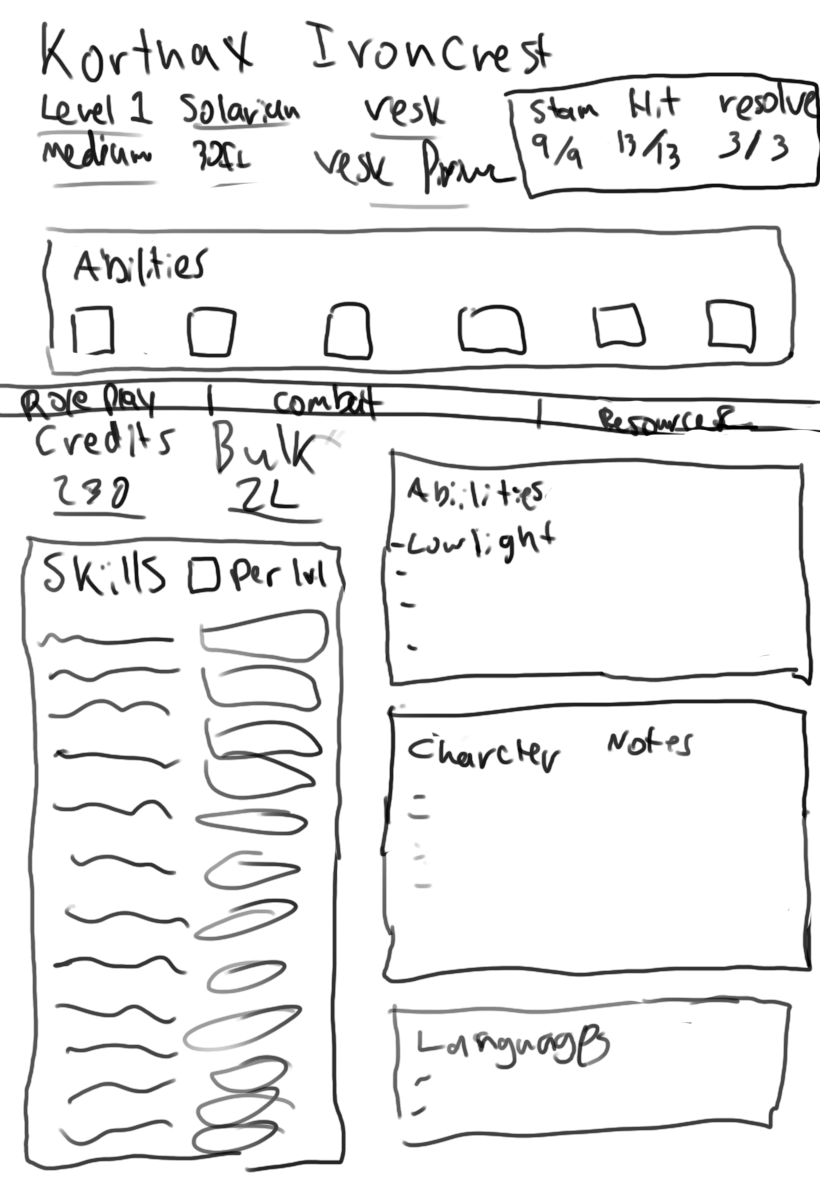 Korthax Ironcrest
Level 1 Solarian vesk
Medium vesk Prime
Stam Hit resolve
9/9 13/13 3/3
Abilties
Role Play | Combatt | Resources
Credits Bulk
230 2L
Skills Per lvl
Abiilities
-Lowlight
-
-
-
Charcter Notes
-
-
-
-
Languages
-
-